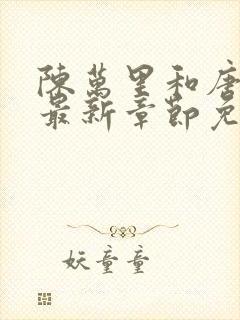 陳萬里和唐
最新章節免
妖童童